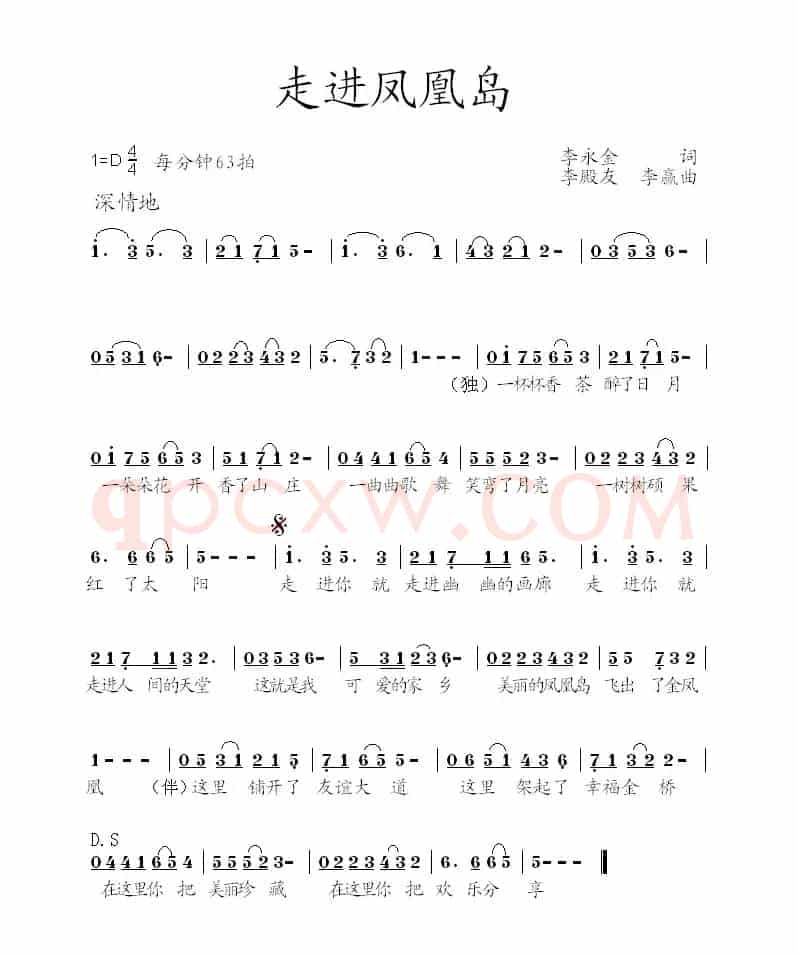 走进凤凰岛
1=D 4/4 每分钟63拍
李永金 词
李殿友 李赢曲
深情地
1. 3 5. 3 | 2 1 7 1 5 - | 1. 3 6. 1 | 4 3 2 1 2 - | 0 3 5 3 6 - |
0 5 3 1 6 - | 0 2 2 3 4 3 2 | 5. 7 3 2 | 1 - - - | 0 1 7 5 6 5 3 | 2 1 7 1 5 - |
（独）一杯杯香 茶 醉了日 月
0 1 7 5 6 5 3 | 5 1 7 1 2 - | 0 4 4 1 6 5 4 | 5 5 5 2 3 - | 0 2 2 3 4 3 2 |
一朵朵花 开 香了山 庄 一曲曲歌 舞 笑弯了月亮 一树树硕 果
qpcxw.COM
6. 6 6 5 | 5 - - - | 1. 3 5. 3 | 2 1 7 1 1 0 5. | 1. 3 5. 3 |
红 了太 阳 走 进你 就 走进幽 幽的画廊 走 进你 就
2 1 7 1 1 3 2. | 0 3 5 3 6 - | 5 3 1 2 3 6 | 0 2 2 3 4 3 2 | 5 5 7 3 2 |
走进人 间的天堂 这就是我 可 爱的家 乡 美丽的凤凰岛 飞出 了金凤
1 - - - | 0 5 3 1 2 1 5 | 7 1 2 6 5 | 0 6 5 1 4 3 6 | 7 1 3 2 2 |
凰 （伴）这里 铺开了 友谊大 道 这里 架起了 幸福金 桥
D.S
0 4 4 1 6 5 4 | 5 5 5 2 3 - | 0 2 2 3 4 3 2 | 6. 6 6 5 | 5 - - - ‖
在这里你 把 美丽珍 藏 在这里你 把 欢 乐分 享